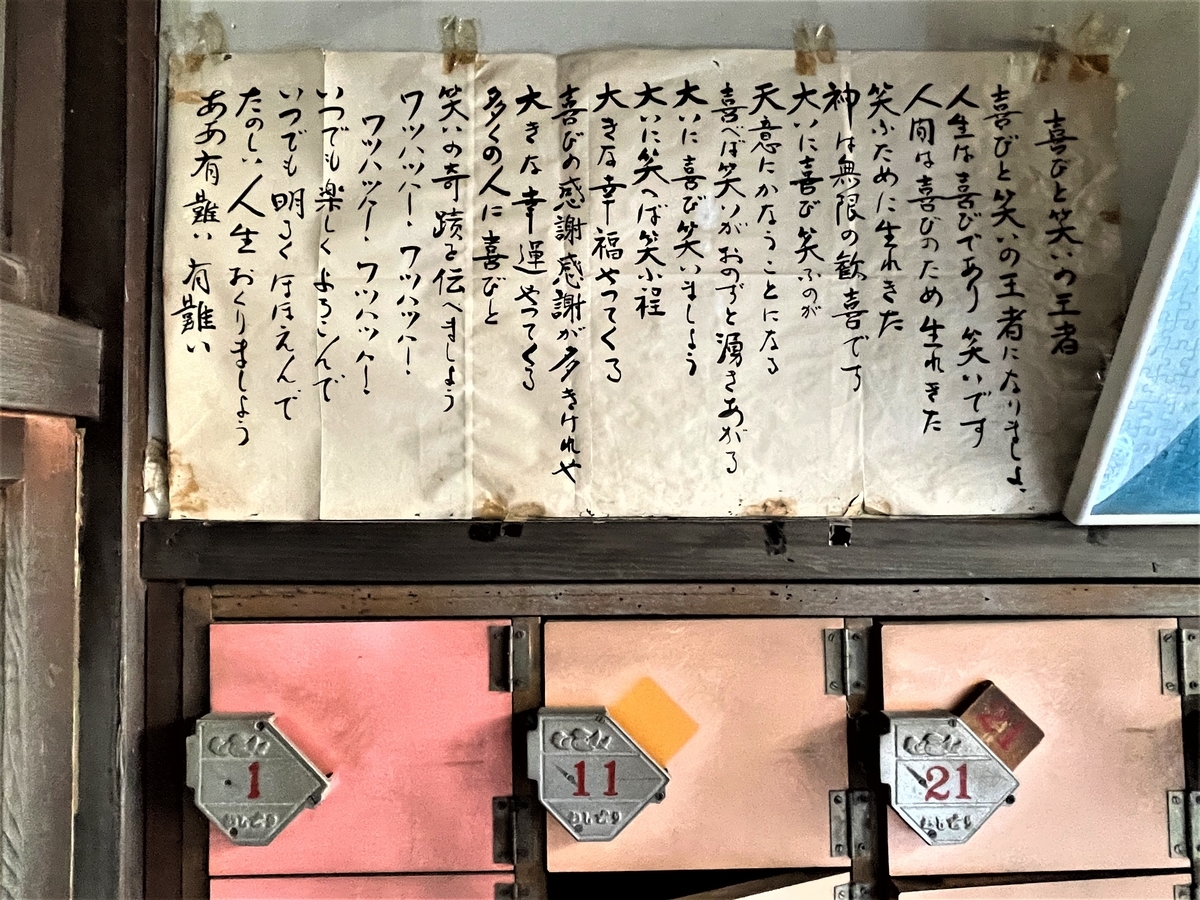 喜びと笑いの王者
喜びと笑いの王者になりましよ
人生は喜びであり 笑いです
人間は喜びのため生れきた
笑ふために生れきた
神は無限の歓喜です
大いに喜び笑ふのが
天意にかなうことになる
喜べば笑いがおのずと湧きあがる
大いに喜び笑いましよう
大いに笑へば笑ふ程
大きな幸福やつてくる
喜びの感謝感謝が多きけれや
大きな幸運やつてくる
多くの人に喜びと
笑いの奇蹟を伝へましよう
ワッハッハー ワッハッハー
ワッハッハー ワッハッハー
いつでも楽しくよろこんで
いつでも明るくほほえんで
たのしい人生おくりましよう
ああ有難い 有難い
1
おしどり
11
おしどり
21
おしどり